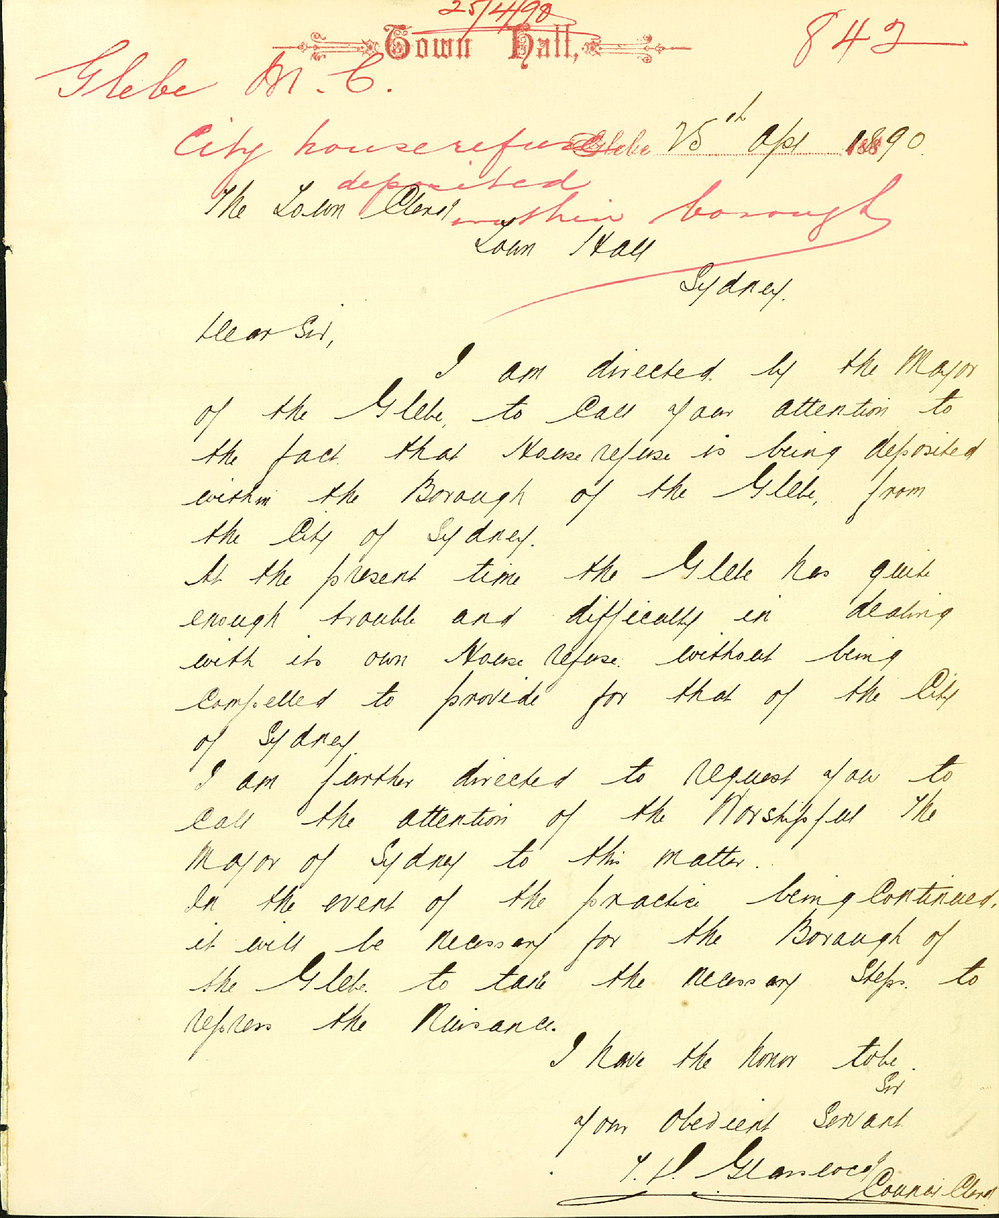 25/4/90
Town Hall,
842
Glebe M. C.
City house refuse
deposited
within borough
Glebe 25th Apl 1890
The Town Clerk
Town Hall
Sydney.
Dear Sir,
I am directed by the Mayor
of the Glebe, to call your attention to
the fact that House refuse is being deposited
within the Borough of the Glebe, from
the City of Sydney.
At the present time the Glebe has quite
enough trouble and difficulty in dealing
with its own House refuse without being
compelled to provide for that of the City
of Sydney.
I am further directed to request you to
call the attention of the Worshipful The
Mayor of Sydney to this matter.
In the event of the practice being continued,
it will be necessary for the Borough of
the Glebe to take the necessary steps to
repress the Nuisance.
I have the honor to be
Sir
your obedient Servant
Glasscock
Council Clerk